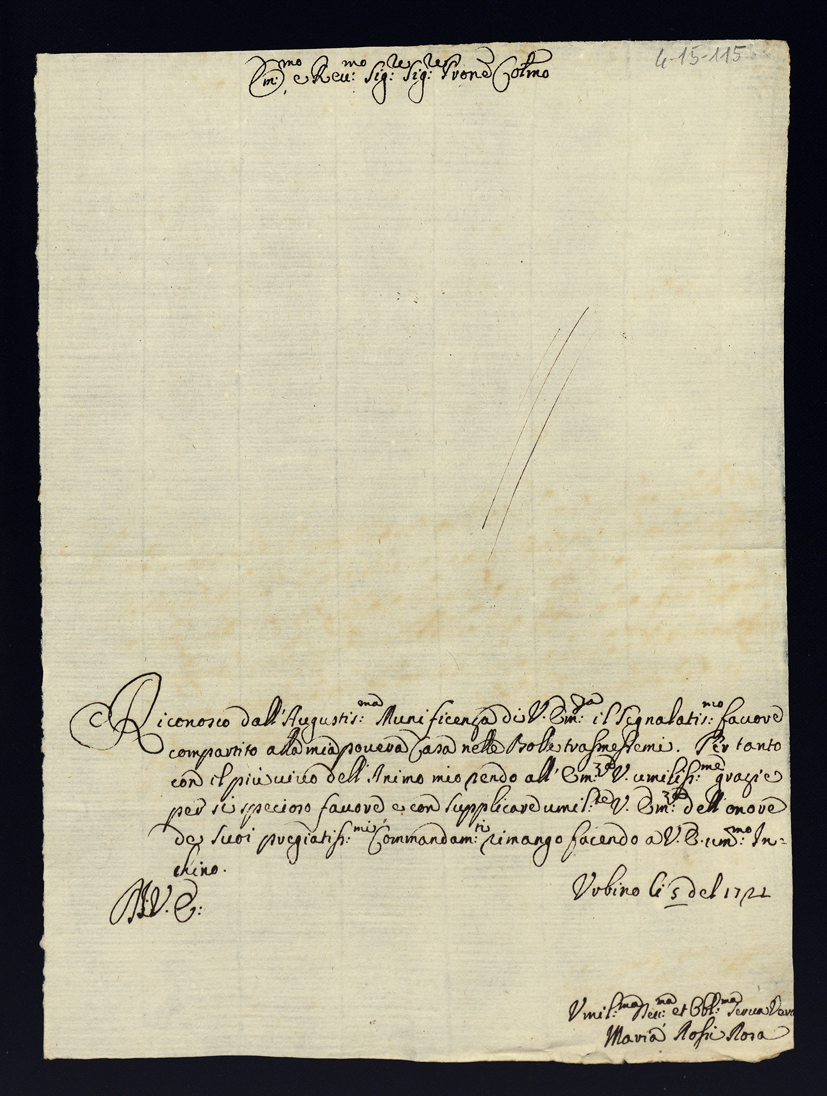 4-15-115
Em:mo e Reu:mo Sig:re Sig:re Prone Colmo
Riconosco dall'Augustis:ma Munificenza di V. Em:za il segnalatis:mo fauore
compartito alla mia pouera Casa nelle Bolle trasmessemi. Per tanto
con il più uiuo dell'Animo mio rendo all'Em:za V. umiliss:me grazie
per si specioso fauore e con supplicare umil:te V. Em:za dell'onore
de suoi pregiatiss:mi Commandam:ti rimango facendo a V. E. um:mo In=
chino.
Di V. E:
Vrbino li 5 del 1721
Vmil:ma Deu:ma et Obl:ma Serua Vera
Maria Rossi Rosa